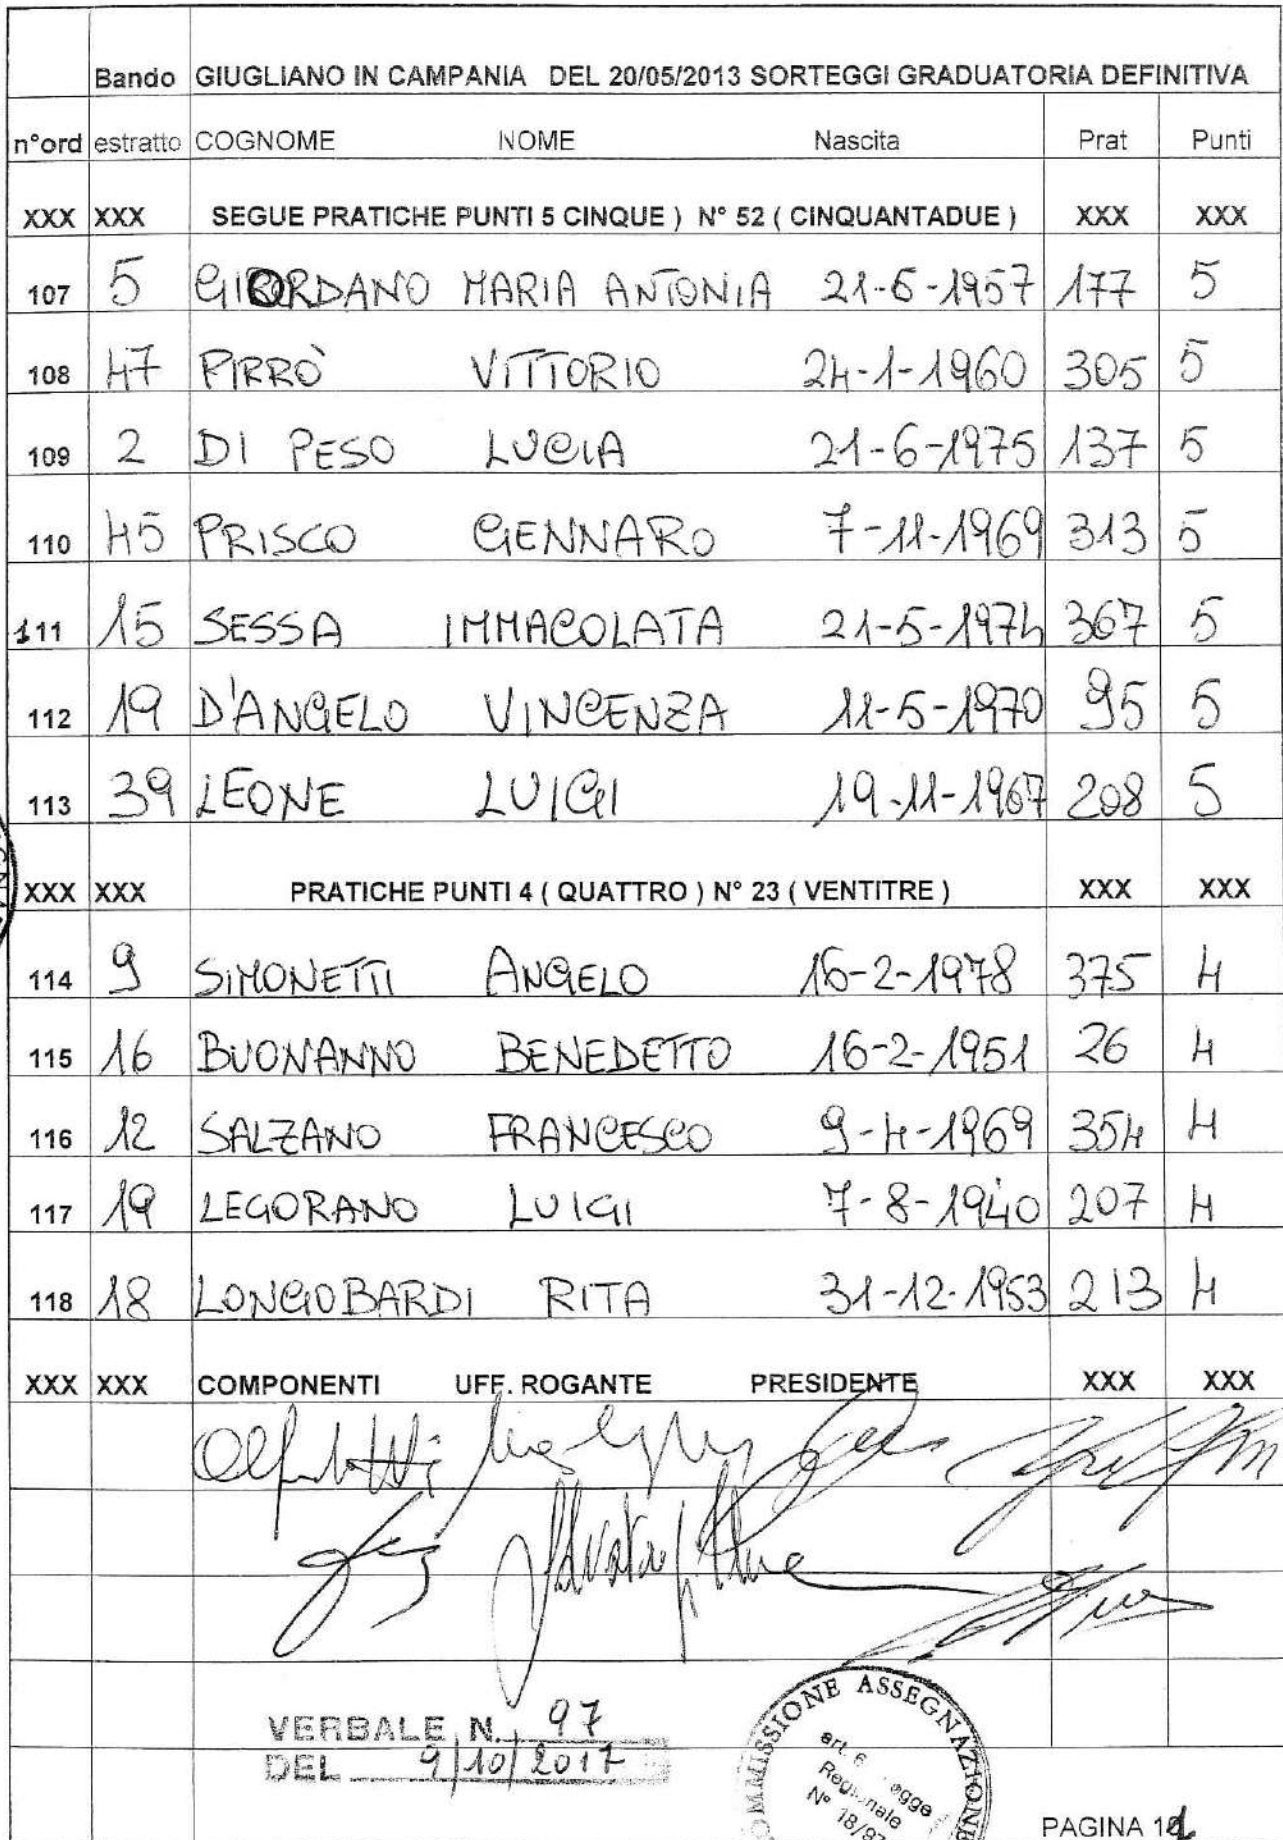 Bando GIUGLIANO IN CAMPANIA DEL 20/05/2013 SORTEGGI GRADUATORIA DEFINITIVA
n°ord estratto COGNOME NOME Nascita Prat Punti
XXX XXX SEGUE PRATICHE PUNTI 5 CINQUE ) N° 52 ( CINQUANTADUE ) XXX XXX
107 5 GIORDANO MARIA ANTONIA 21-5-1957 177 5
108 47 PIRRÒ VITTORIO 24-1-1960 305 5
109 2 DI PESO LUCIA 21-6-1975 137 5
110 45 PRISCO GENNARO 7-11-1969 313 5
111 15 SESSA IMMACOLATA 21-5-1974 367 5
112 19 D'ANGELO VINCENZA 11-5-1970 95 5
113 39 LEONE LUIGI 19-11-1967 208 5
XXX XXX PRATICHE PUNTI 4 ( QUATTRO ) N° 23 ( VENTITRE ) XXX XXX
114 9 SIMONETTI ANGELO 16-2-1978 375 4
115 16 BUONANNO BENEDETTO 16-2-1951 26 4
116 12 SALZANO FRANCESCO 9-4-1969 354 4
117 19 LEGORANO LUIGI 7-8-1940 207 4
118 18 LONGOBARDI RITA 31-12-1953 213 4
XXX XXX COMPONENTI UFF. ROGANTE PRESIDENTE XXX XXX
VERBALE N. 97
DEL 9/10/2017
COMMISSIONE ASSEGNAZIONE
art. 6
Regionale
N° 18/97
PAGINA 11